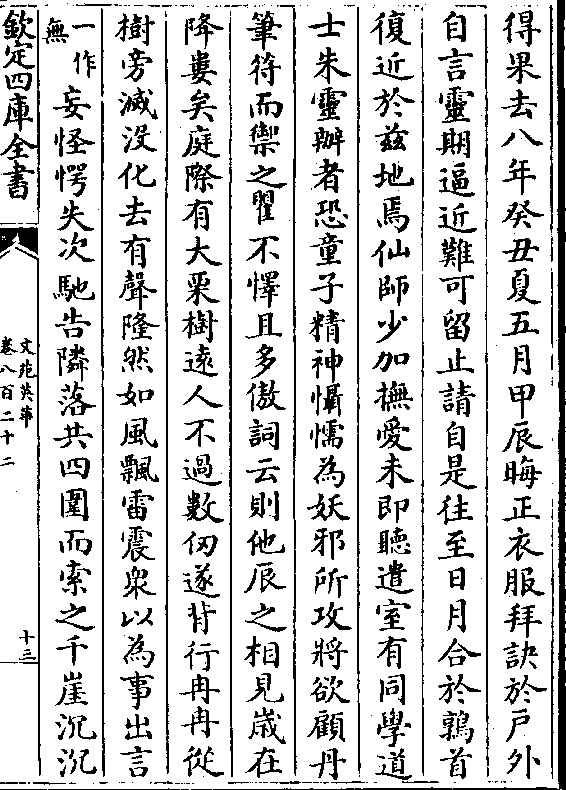 得果去八年癸丑夏五月甲辰晦正衣服拜訣於戸外
自言靈期逼近難可留止請自是往至日月合於鶉首
復近於兹地焉仙師少加撫愛未即聽遣室有同學道
士朱靈辦者恐童子精神懾懦為妖邪所攻將欲顧丹
筆符而禦之瞿不懌且多傲詞云則他辰之相見嵗在
降婁矣庭際有大栗樹逺人不過數仞遂背行冉冉從
樹旁滅没化去有聲隆然如風飄雷震衆以為事出言
一作無妄怪愕失次馳告隣落共四圍而索之千崖沉沉
欽定四庫全書
文苑英華
卷八百二十二
十三